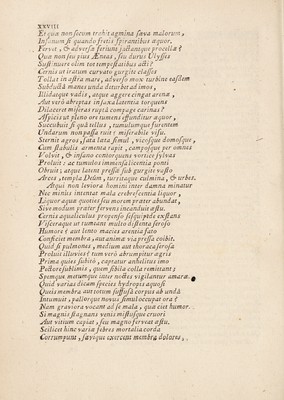 XXVIII
Et quæ non secum trahit agmina sæva malorum,
Insanum si quando fretis spirantibus æquor,
Fervet, & adversæ feriunt jactantque procellæ?
Quæ non seu pius Æneas, seu durus Ulysses
Sustinuere olim tot tempestatibus acti?
Cernis ut iratum curvato gurgite classes
Tollat in astra mare, adverso mox turbine easdem
Subductâ manes unda deturbet ad imos,
Illidatque vadis, atque aggere cingat arenæ,
Aut verò abreptas in saxa latentia torquens
Dilaceret miseras ruptâ compage carinas?
Afficis ut pleno ore tumens effunditur æquor,
Succedunt si quà tellus, tumulumque furentem
Undarum non passa ruit? miserabile visu.
Sternit agros, sata læta simul, vicosque domosque,
Cum stabulis armenta rapit, camposque per omnes
Volvit, & insano contorquens vortice sylvas
Proluit: ac tumulos immensâ licentia ponti
Obruit; atque latent pressæ sub gurgite vasto
Arces, templa Deûm, turritaque culmina, & urbes.
Atque non leviora homini inter damna minatur
Nec minùs intentat mala crebrescentia liquor,
Liquor aqua quoties seu morem præter abundat,
Sive modum præter fervens incanduit æstu.
Cernis aqualiculus propenso sesquipede exstans
Visceraque ut tumeant multo distenta feroso
Humore? aut lento macies arentia fato
Conficiet membra, aut animæ via pressa coibit.
Quid si pulmones, medium aut thoraca serosa
Proluit illuvies? tum verò abrumpitur ægris
Prima quies subitò, captatur anhelitus imo
Pectore sublimis, quem fibila colla remittant;
Spemque metumque inter noctes vigilantur amaræ.
Quid varias dicam species hydropis aquosi
Queis membra aut totum suffusâ corpus ab undâ
Intumuit, pallorque novus simul occupat ora?
Nam graviora vocant ad se mala, quæ ciet humor.
Si magnis stagnans venis mistusque cruori
Aut vitium cepiat, seu magno fervent æstu.
Scilicet hinc variæ febres mortalia corda
Corrumpunt, sævoque exercent membra dolores,